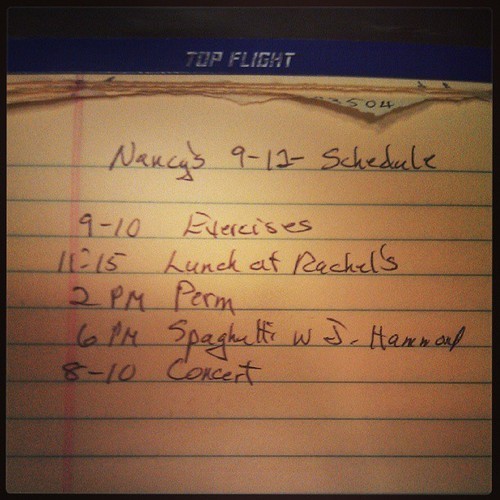 TOP FLIGHT
Nancy's 9-12- Schedule
9-10 Exercises
11:15 Lunch at Rachel's
2 PM Perm
6 PM Spaghetti w J. Hammond
8-10 Concert